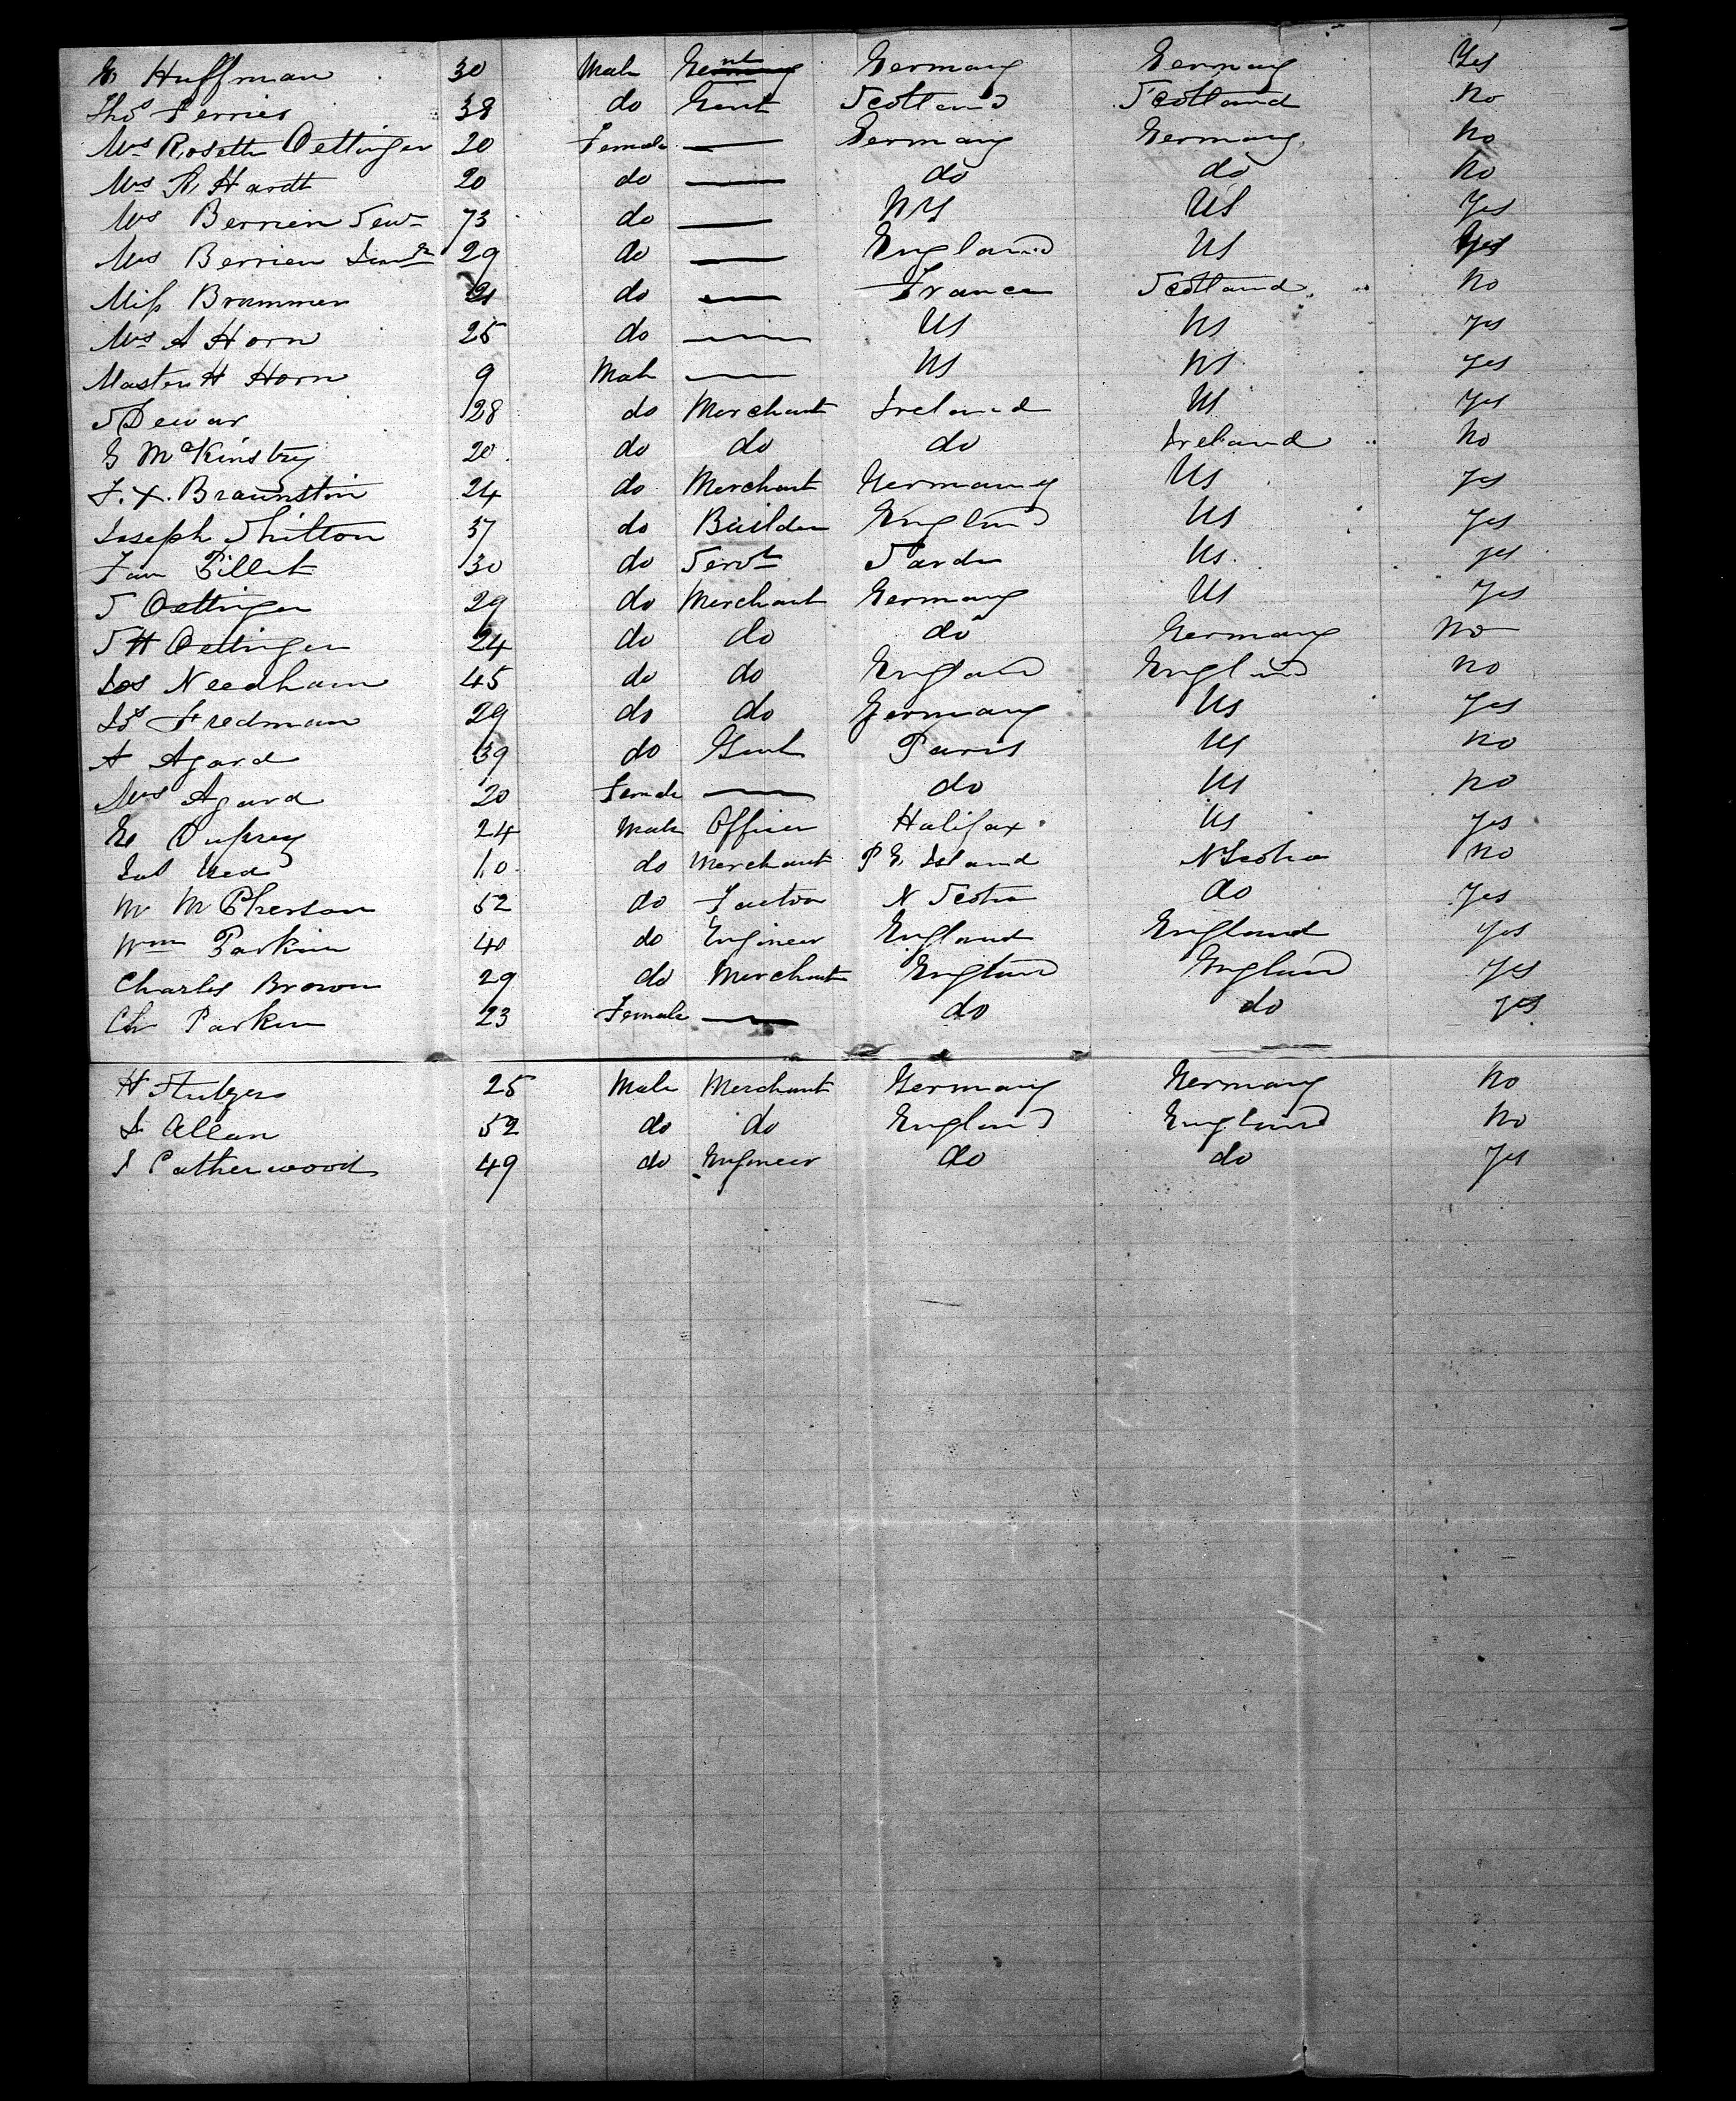 E Huffman 30 Male Gent Germany Germany Yes
Thos Ferrier 38 do Gent Scotland Scotland No
Mrs Rosetta Oettinger 20 Female — Germany Germany No
Mrs R Hardt 20 do — do do No
Mrs Berrien Senr 73 do — NY US Yes
Mrs Berrien 29 do — England US Yes
Miss Brammer 21 do — France Scotland No
Mrs A Horn 25 do — US US Yes
Master H Horn 9 Male — US US Yes
S Dewar 28 do Merchant Ireland US Yes
G McKinstry 20 do do do Ireland No
F. X. Braunstin 24 do Merchant Germany US Yes
Joseph Shitton 37 do Builder England US Yes
Pillet 30 do Servt US Yes
S Oettinger 29 do Merchant Germany US Yes
S H Oettinger 24 do do do Germany No
Jos Needham 45 do do England England No
Is Fredman 29 do do Germany US Yes
A Agard 39 do Gent Paris US No
Mrs Agard 20 Female — do US No
E Duprey 24 Male Officer Halifax US Yes
10 do Merchant P E Island N Scotia No
M McPherson 52 do N Scotia do Yes
Wm Parkin 40 do Engineer England England Yes
Charles Brown 29 do Merchant England England Yes
Ch Parkin 23 Female — do do Yes
H Stutzer 25 Male Merchant Germany Germany No
J Allan 52 do do England England No
J Catherwood 49 do Engineer do do Yes